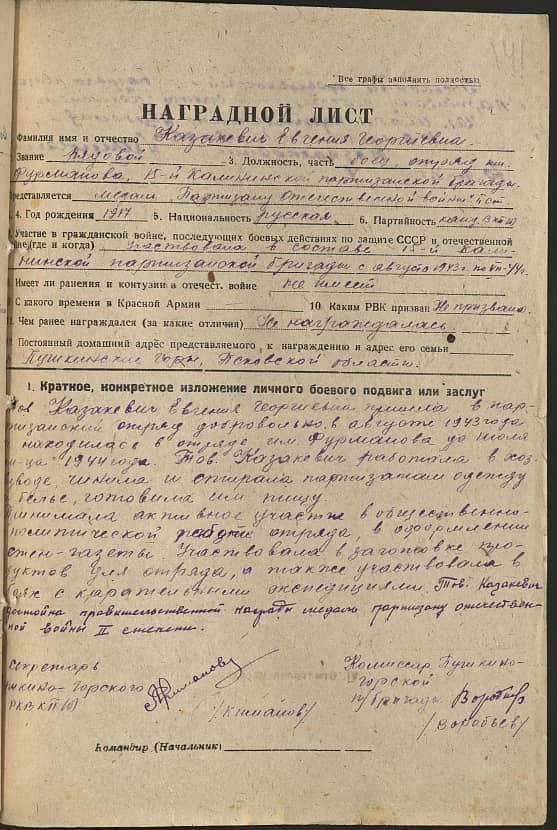 141
Все графы заполнить полностью
НАГРАДНОЙ ЛИСТ
Фамилия имя и отчество Казакевич Евгения Георгиевна.
Звание Рядовой 3. Должность, часть боец, отряд им.
Фурманова, 15-й Калининской партизанской бригады.
редставляется медали „Партизану Отечественной войны" II ст.
4. Год рождения 1917 5. Национальность русская 6. Партийность канд. ВКП(б)
Участие в гражданской войне, последующих боевых действиях по защите СССР и отечественной
не (где и когда) Участвовала в составе 15-й Кали-
нинской партизанской бригады с августа 1943г. по VII-44г.
Имеет ли ранения и контузии в отечест. войне не имеет
С какого времени в Красной Армии 10. Каким РВК призван Не призвана.
Чем ранее награждался (за какие отличия) Не награждалась
Постоянный домашний адрес представляемого к награждению и адрес его семьи
Пушкинские горы, Псковской области.
I. Краткое, конкретное изложение личного боевого подвига или заслуг
ов Казакевич Евгения Георгиевна пришла в пар-
тизанский отряд добровольно в августе 1943 года
находилась в отряде им. Фурманова до июля
м-ца 1944 года. Тов. Казакевич работала в хоз.
взводе, чинила и стирала партизанам одежду
белье, готовила им пищу.
ринимала активное участие в общественно-
политической работе отряда, в оформлении
стен-газеты. Участвовала в заготовке про-
дуктов для отряда, а также участвовала в
с карательными экспедициями. Тов. Казакевич
достойна правительственной награды медали партизану отечествен-
ной войны II степени.
Секретарь
ушкино-Горского
РКВКП(б)
/Климанов/
Комиссар Пушкино-
Горской
п/бригады Воробьев
/Воробьев/
Командир (Начальник)